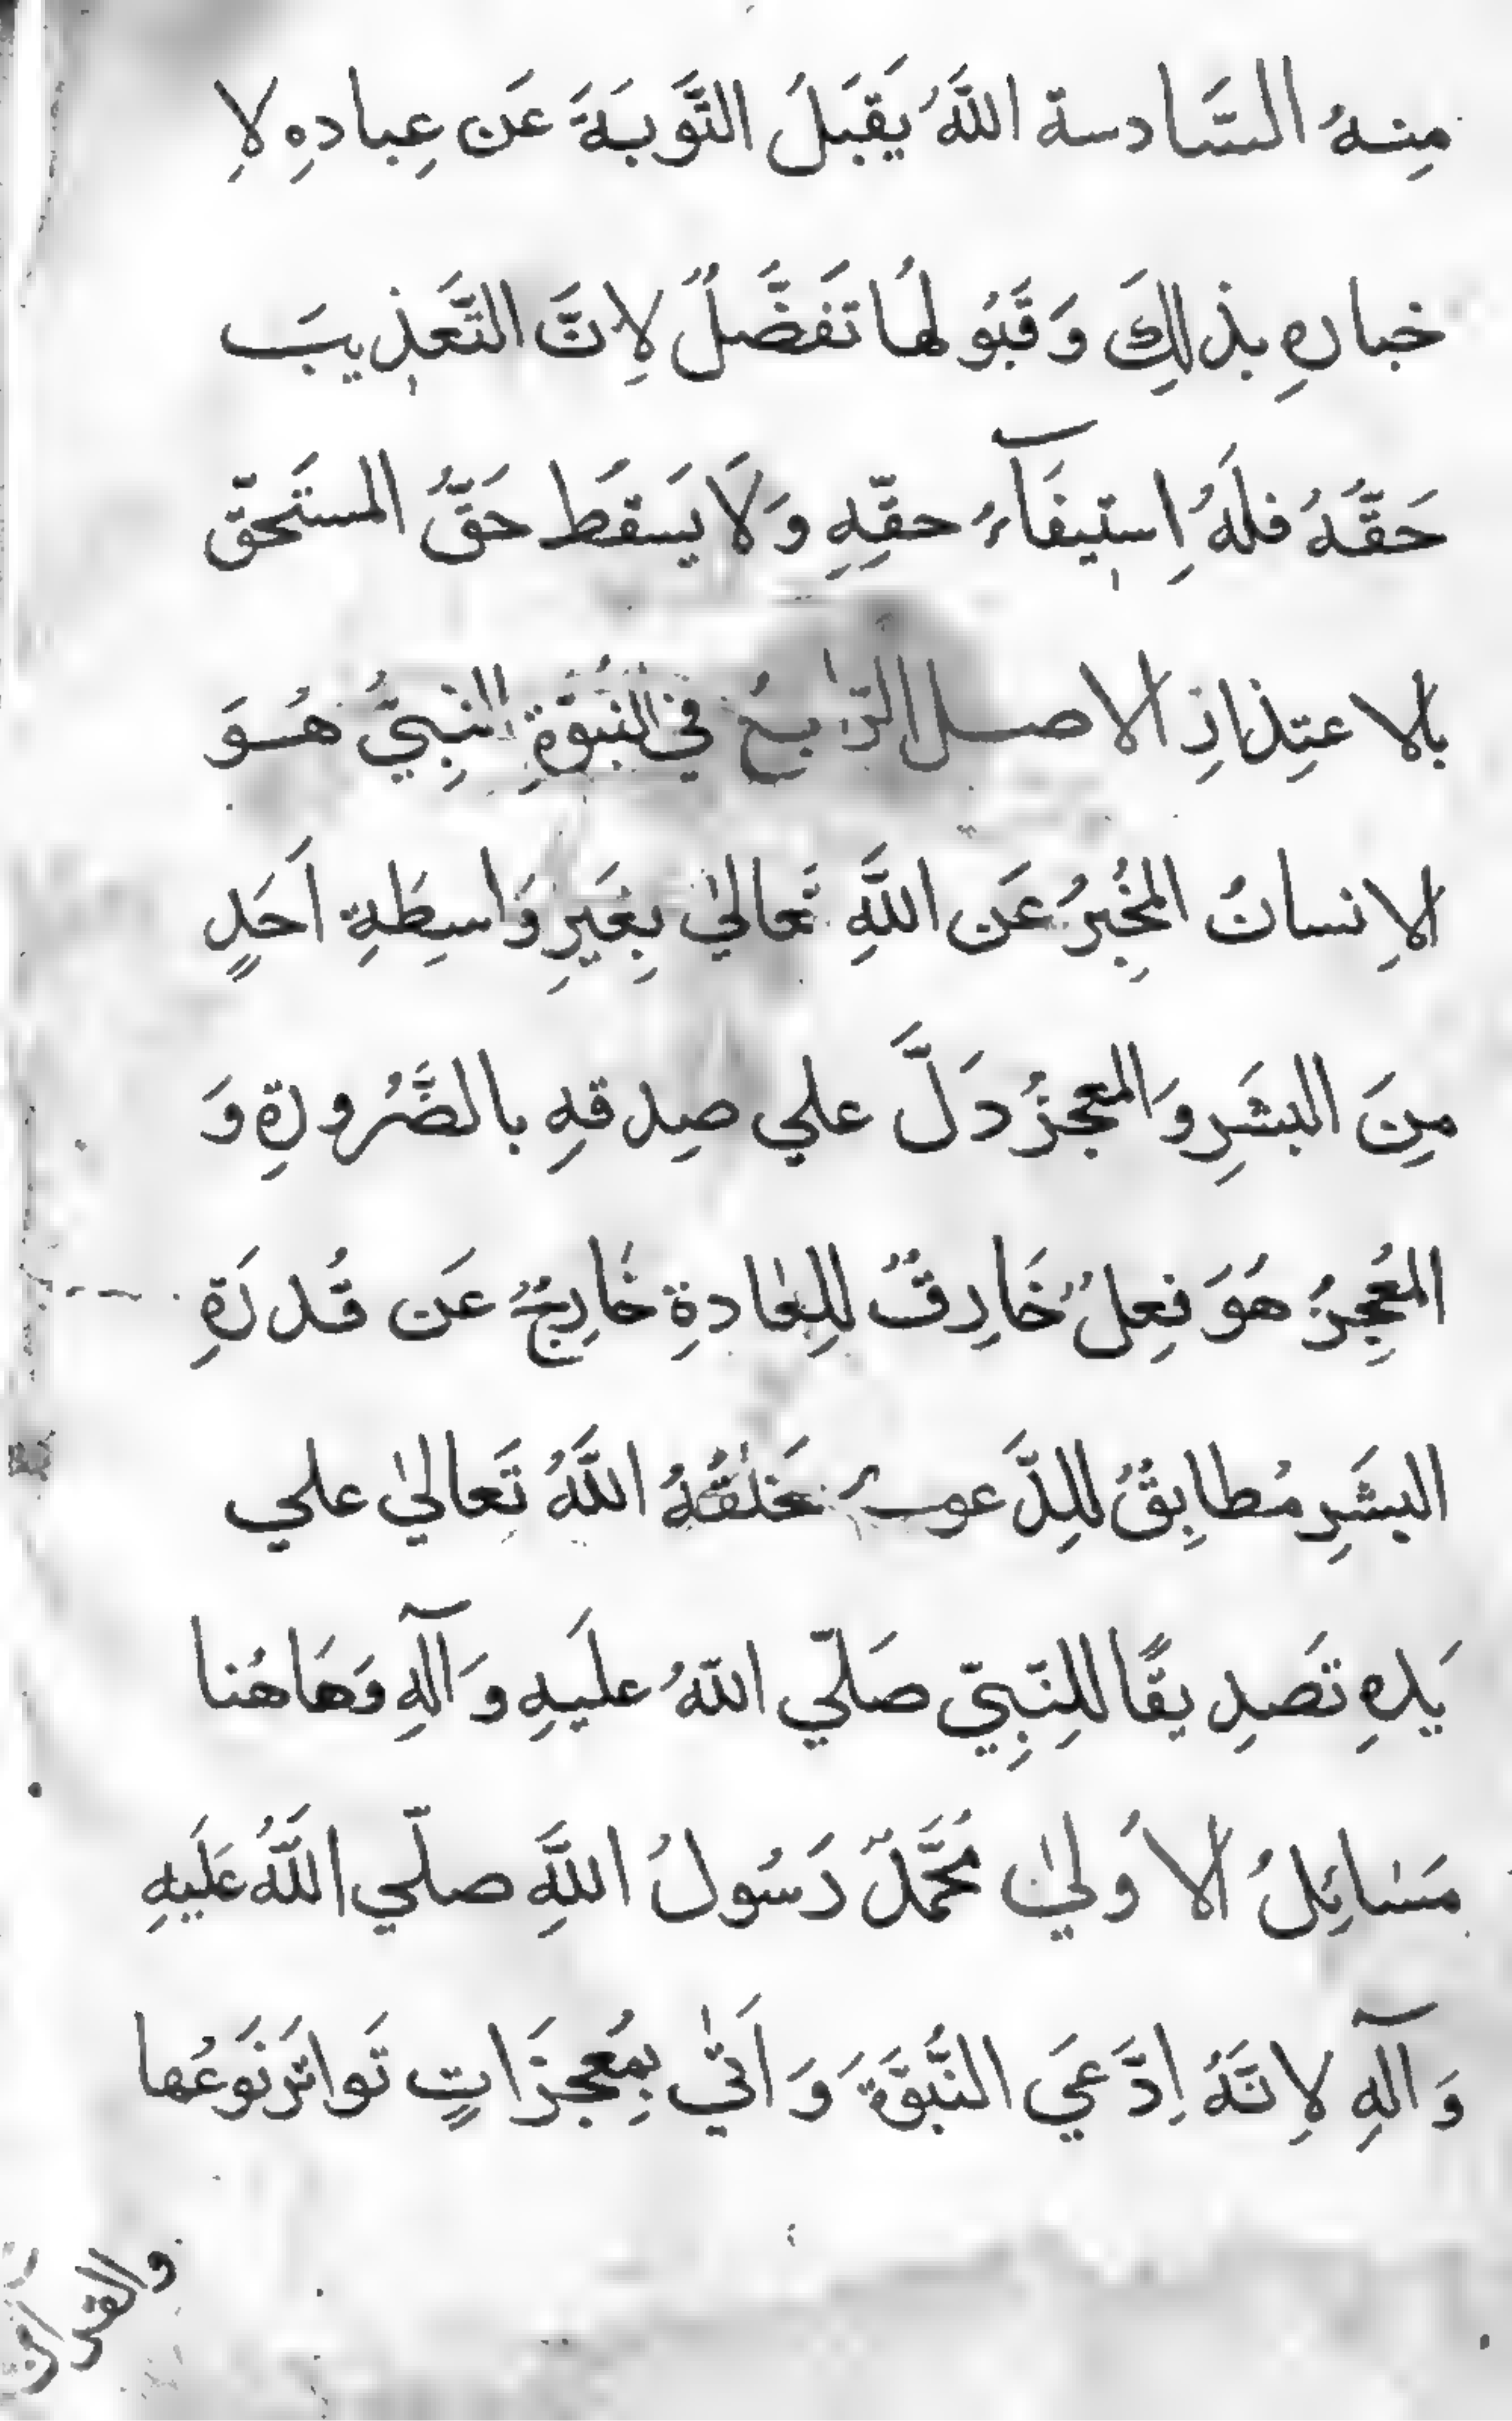 مِنهُ السَّادسة اللَّهُ يَقبَلُ التَّوبَةَ عَن عِبادهِ لاِ
خبارهِ بذلِكَ وَقَبُولهُا تَفَضَّلٌ لاِنَّ التَّعَذِيبَ
حَقَّهُ فلَهُ اِستِيفَآءُ حقِّهِ وَلَا يَسقَط حَقُّ المستَحقّ
بالاعتِذارِ الاصل الرّابعُ في النُبُوَّةِ النبِيُّ هُوَ
الاِنسانُ المخُبِرُ عَن اللَّهِ تَعالىٰ بِغَيرِ وَاسِطَةِ اَحَدٍ
مِنَ البشَرِ وَالمعجزُ دَلَّ علي صِدقهِ بالضَّرُورةِ وَ
المعُجِزُ هَوَ فِعلٌ خَارِقٌ للِعادةِ خَارِجٌ عَن قُدرَةِ
البشَرِ مُطابِقٌ للِدَّعوي خَلقَهُ اللَّهُ تَعاليٰ علي
يَدهِ تَصدِيقًا للِنّبِيّ صَلّي اللّهُ علَيهِ وَآلهِ وَهَاهُنا
مَسٰائِلُ الاُوليٰ مُحَمَّدٌ رَسُولُ اللَّهِ صلّي اللَّهُ عَلَيهِ
وَآلهِ لاِنَّهُ اِدَّعَيَ النُّبُوَّةَ وَاَتيٰ بِمُعجِزَاتٍ تَواتَرَ نَوَعُها
والقرآن